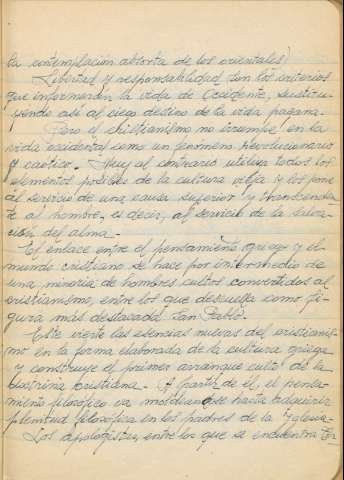 la contemplación absorta de los orientales)
Libertad y responsabilidad son los criterios
que informarán la vida de Occidente, sustitu-
yendo así al ciego destino de la vida pagana.
Pero el cristianismo no irrumpe en la
vida occidental como un fenómeno revolucionario
y caótico. Muy al contrario utiliza todos los
elementos posibles de la cultura vieja y los pone
al servicio de una causa superior y transcenden-
te al hombre, es decir, al servicio de la salva-
ción del alma.-
El enlace entre el pensamiento griego y el
mundo cristiano se hace por intermedio de
una minoría de hombres cultos convertidos al
cristianismo, entre los que descuella como fi-
gura más destacada San Pablo.
Este vierte las esencias nuevas del cristianis-
mo en la forma elaborada de la cultura griega
y construye el primer arranque culto de la
doctrina cristiana.- A partir de él, el pensa-
miento filosófico va moldeándose hasta adquirir
plenitud filosófica en los padres de la Iglesia.-
Los apologistas, entre los que se encuentra Ter-